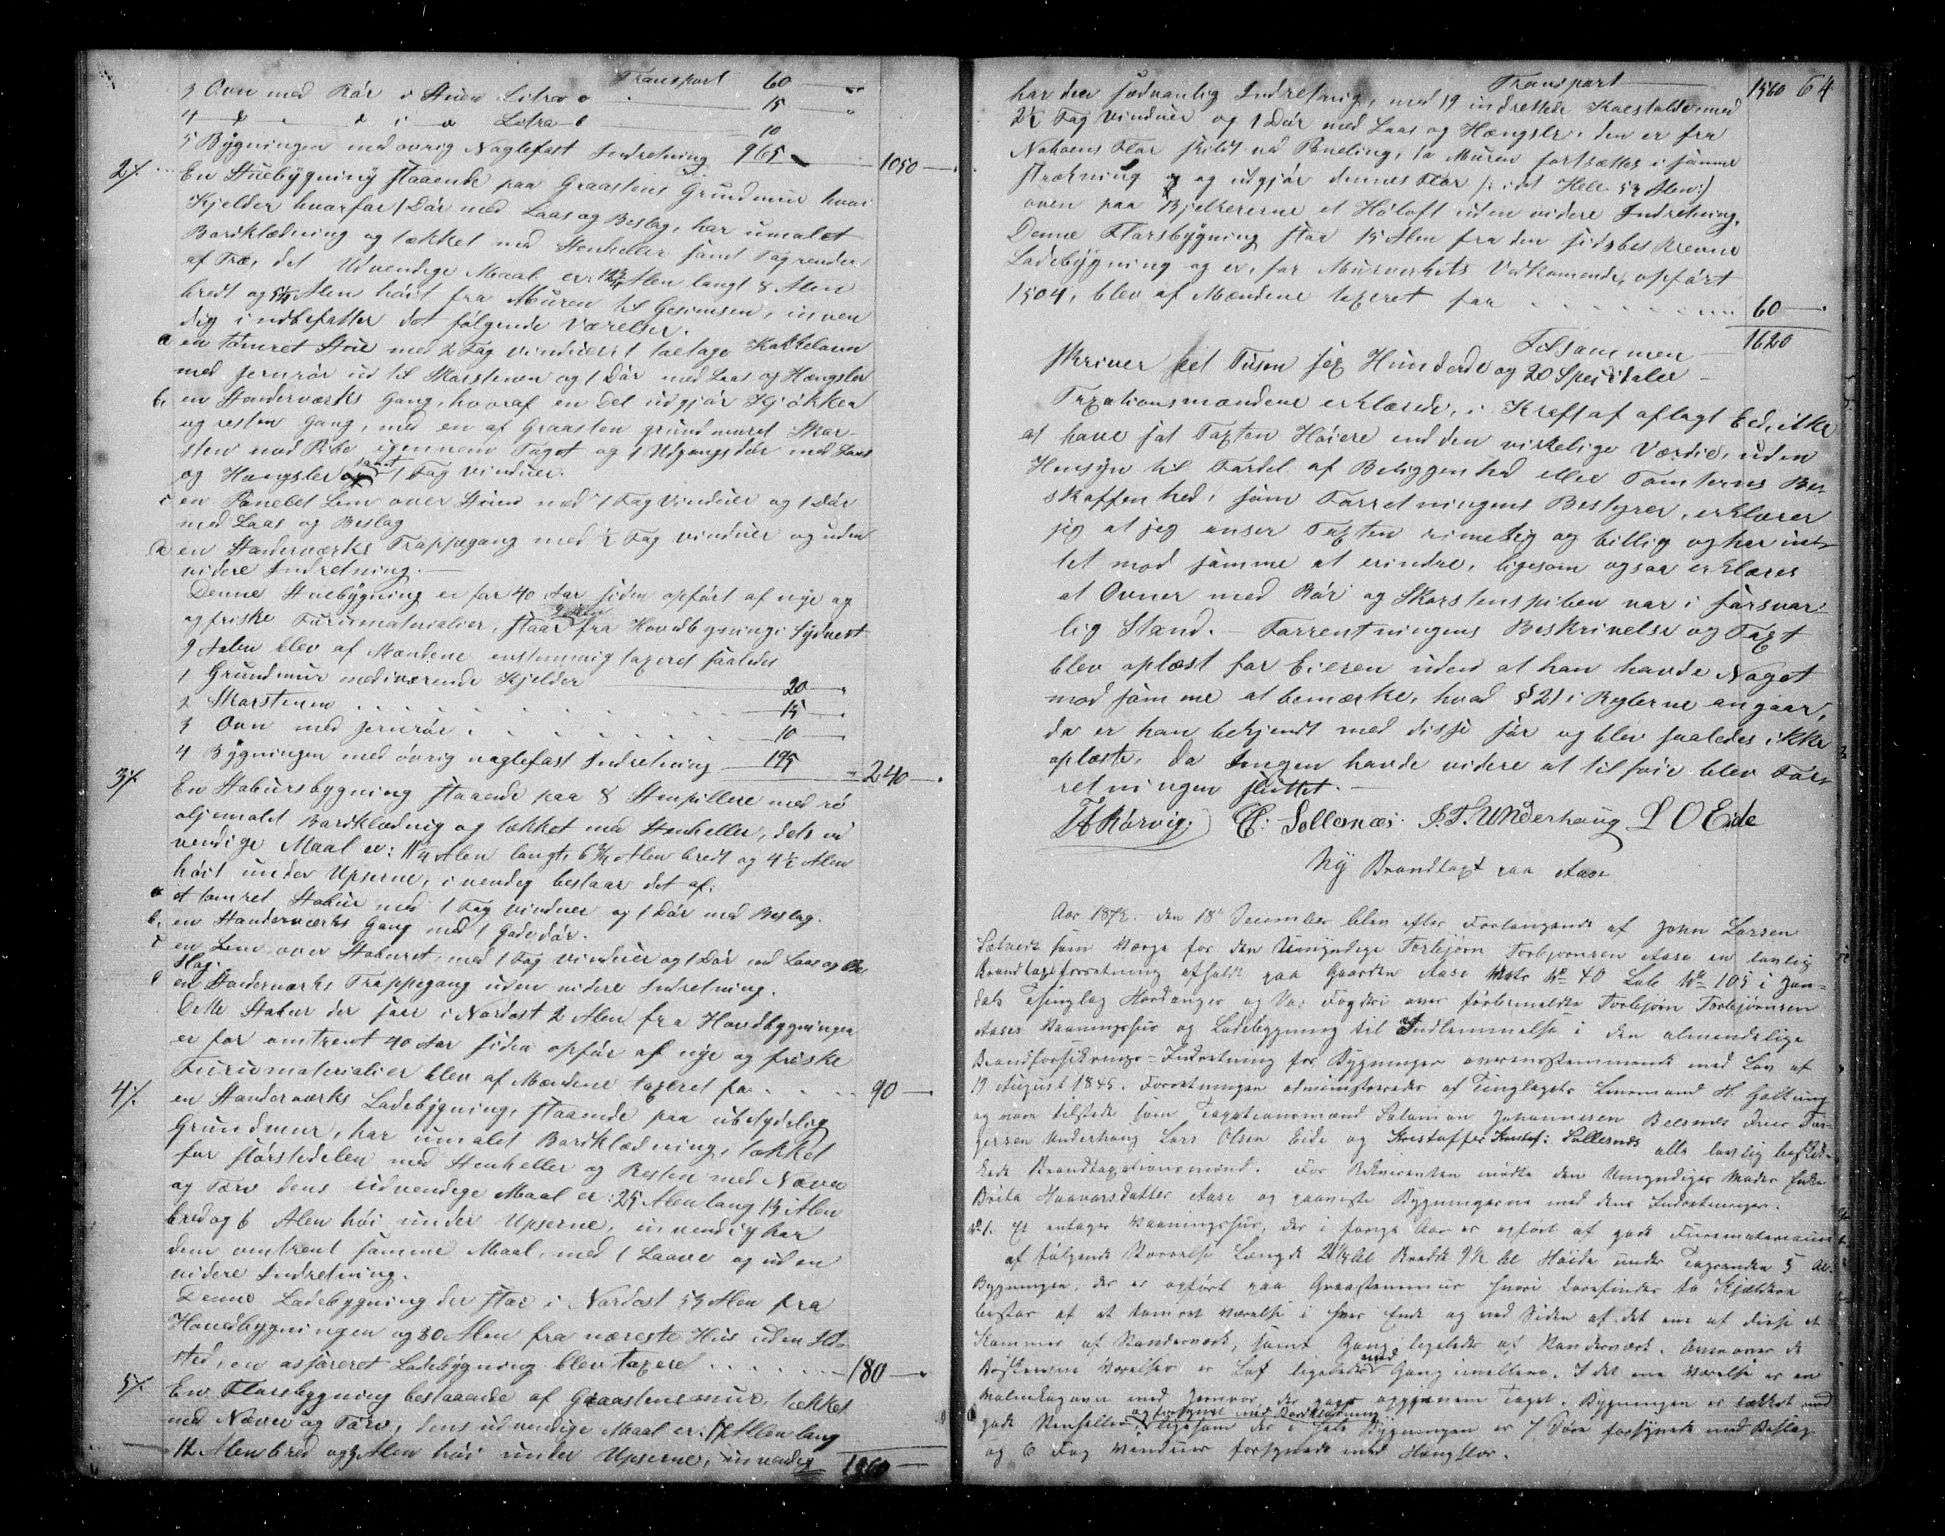 Transport 60 "
3 Ovn med Rør i Stuen Litra a 15 "
4 d d i d Litra b 10
5 Bygningen med øvrig Naglefast Indretning 965 1050
2/. En Stuebygning staaende paa Graastens Grundmur hvori
Kjelder hvorfor 1 Dør med Laas og Beslag, har umalet
Bordklædning og tækket med Stenheller samt Tagrender
af Træ, det Udvendige Maal er: Alen langt 8 Alen
bredt og 5 1/4 Alen høit fra Muren til Gesimsen, inven
dig indbefatter det følgende Værelser.
a en tømret Stue med 2 Fag Vinduer 1 toetage Kakkelovn
med jernrør ud til Skorstenen og 1 Dør med Laas og Hængsler
b, en Standerværks Gang, hvoraf en Del udgjør Kjøkken
og resten Gang, med en af Graasten grundmuret Skor-
sten med Pibe igjennem Taget og 1 Udgangsdør med Laas
og Hængsler samt 1 Fag Vinduer.
c en Panelet Lem over Stuen med 1 Fag Vinduer og 1 Dør
med Laas og Beslag
d en Standerværks Trappegang med 1/2 Fag Vinduer og uden
videre Indretning.
Denne Stuebygning er for 40 Aar siden opført af nye og
og friske Furumaterialier, staar fra Hovedbygningi Sydvest
9 Alen blev af Mændene enstemmig taxeret saaledes
1 Grundmur medværende Kjelder 20 "
2 Skorstenen 15 "
3 Ovn med jernrør 10
4 Bygningen med øvrig naglefast Indretning 195 " 240
3/. En Stabursbygning staaende paa 8 Stenpillere med rø
oljemalet Bordklædning og tækket med Stenheller, dets ud
vendige Maal er: 11 1/4 Alen langt, 6 3/4 Alen bredt og 4 1/2 Alen
høit under Upserne, invendig bestaar det af:
a et tømret Stabur med 1 Fag Vinduer og 1 Dør med Beslag.
b, en Standerværks Gang med 1 Gadedør.
c en Lem over Staburet, med 1 Fag Vinduer og 1 Dør med Laas og Be
slag.
d en Standerværks Trappegang uden videre Indretning.
Dette Stabur der staar i Nordost 2 Alen fra Hovedbygningen
er for omtrent 40 Aar siden opført af nye og friske
Furumaterialier blev af Mændene taxeret for 90
4/. en Standerværks Ladebygning, staaende paa ubetydelig
Grundmur, har umalet Bordklædning, tækket
for størstedelen med Stenheller og Resten med Næver
og Torv dens udvendige Maal er: 25 Alen lang 13 Alen
bred og 6 Alen høi under Upserne, invendig har
den omtrent samme Maal, med 1 Laave og uden
videre Indretning.
Denne Ladebygning der staar i Nordost 53 Alen fra
Hovedbygningen og 30 Alen fra næreste Hus uden Ild-
sted, en assureret Ladebygning blev taxeret 180
5/. En Florsbygning bestaaende af Graastensmur, tækket
med Næver og Torv, dens udvendige Maal er: 17 Alen lang
12 Alen bred og 3 Alen høi under Upserne, invendig 1560
Transport 1560 64
har den sædvanlig Indretning, med 19 indrettede Koestalde, med
2 1/2 Fag Vinduer og 1 Dør med Laas og Hængsler, den er fra
Naboens Flor skildt ved Paneling, da Muren fortsættes i samme
strækning og udgjør dennes Flor (: i det Hele 53 Alen:)
oven paa Bjelkererne et Høloft uden videre Indretning.
Denne Florsbygning staar 15 Alen fra den sidsbeskrevne
Ladebygning og er, for Murverkets Vedkomende, opført
1804, blev af Mændene taxeret for 60
Tilsammen 1620
skriver Eet Tusen sex Hunderde og 20 Speisdaler
Taxationsmændene erklærede, i Kraft af aflagt Eed, ikke
at have sat Taxten Høiere end den virkelige Værdie, uden
Hensyn til Fordel af Beliggenhed eller Tomternes Be-
skaffenhed, som Forretningens Bestyrer, erklærer
jeg at jeg anser Taxten rimelig og billig og har int-
tet mod samme at erindre, ligesom ogsaa erklæres
at Ovner med Rør og Skorstenspiben var i forsvar-
lig Stand. — Forrentningens Beskrivelse og Taxt
blev oplæst for Eieren uden at han havde Noget
mod samme at bemærke, hvad § 21 i Reglerne angaar,
da er han bekjendt med disse før og blev saaledes ikke
oplæste, da Ingen havde videre at tilføie blev For-
retningen sluttet.
C. Sollesnæs. I. T. Underhaug L O Eide
Ny Brandtaxt paa Aase
Aar 1872. den 18de December blev efter Forlangende af John Larsen
som Værge for den Umyndige Torbjørn Torbjørnsen Aase en lovlig
Brandtaxtforretning afholdt paa Gaarden Aase Matr No 40 Løb No 105 i Jon-
dals Thinglag Hardanger og Vos Fogderi over førbemeldte Torbjørn Torbjørnsen
Aases Vaaningshus og Ladebygning til Indlemmelse i den almindelige
Brandforsikrings-Indretning for Bygninger overensstemmende med Lov af
19 August 1845. Forretningen administreredes af Tinglagets Lensmand H. Gøltung
og vare tilstede som Taxationsmænd Salamon Johannesen Belsnes Iver Tor-
gersen Underhaug Lars Olsen Eide og Krestoffer Sollesnæs alle lovlig beskik-
kede Brandtaxationsmænd. For Rekvirenten mødte den Umyndiges Moder Enke
Brita Haavarsdatter Aase og paaviste Bygningerne med dens Indretninger.
No 1. Et entages Vaaningshus, der i forige Aar er opført af gode Furematerialier
af følgende Størrelse Længde 21 1/2 Al Bredde 9 1/2 Al Høide under Tagrenden 5 Al.
Bygningen, der er opført paa Graastensmur hvori forefindes to Kjældere
bestaar af et tømret Værelse i hver Ende og ved Siden af det ene af disse et
Kammer af Standerverk, samt Gang ligeledes af Standerverk. Ovenover de
Beskrevne Værelser er Loft ligeledes med Gang imellem. I det ene Værelse er en
Vindovn med Jernrør der gaar opgjennem Taget. Bygningen er tækket med
gode Stenheller og forsynet med Bordklædning ligesom der i hele Bygningen er 7 Døre forsynede med Beslag
og 6 Fag Vinduer forsynede med Hængsler.